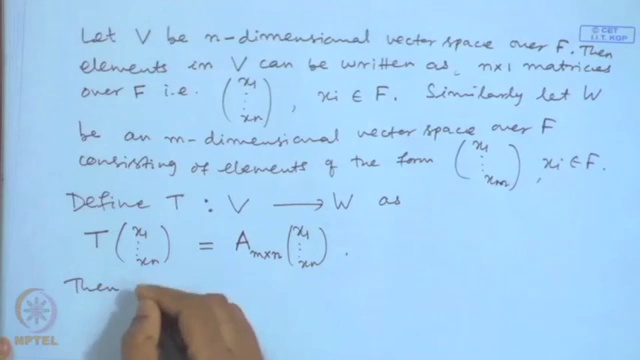 © CET
I.I.T. KGP
Let V be n-dimensional vector space over F. Then
elements in V can be written as n×1 matrices
over F i.e. (x1 ⋮ xn), xi ∈ F. Similarly let W
be an m-dimensional vector space over F
consisting of elements of the form (x1 ⋮ xm), xi ∈ F.
Define T : V ⟶ W as
T (x1 ⋮ xn) = Am×n (x1 ⋮ xn).
Then
NPTEL